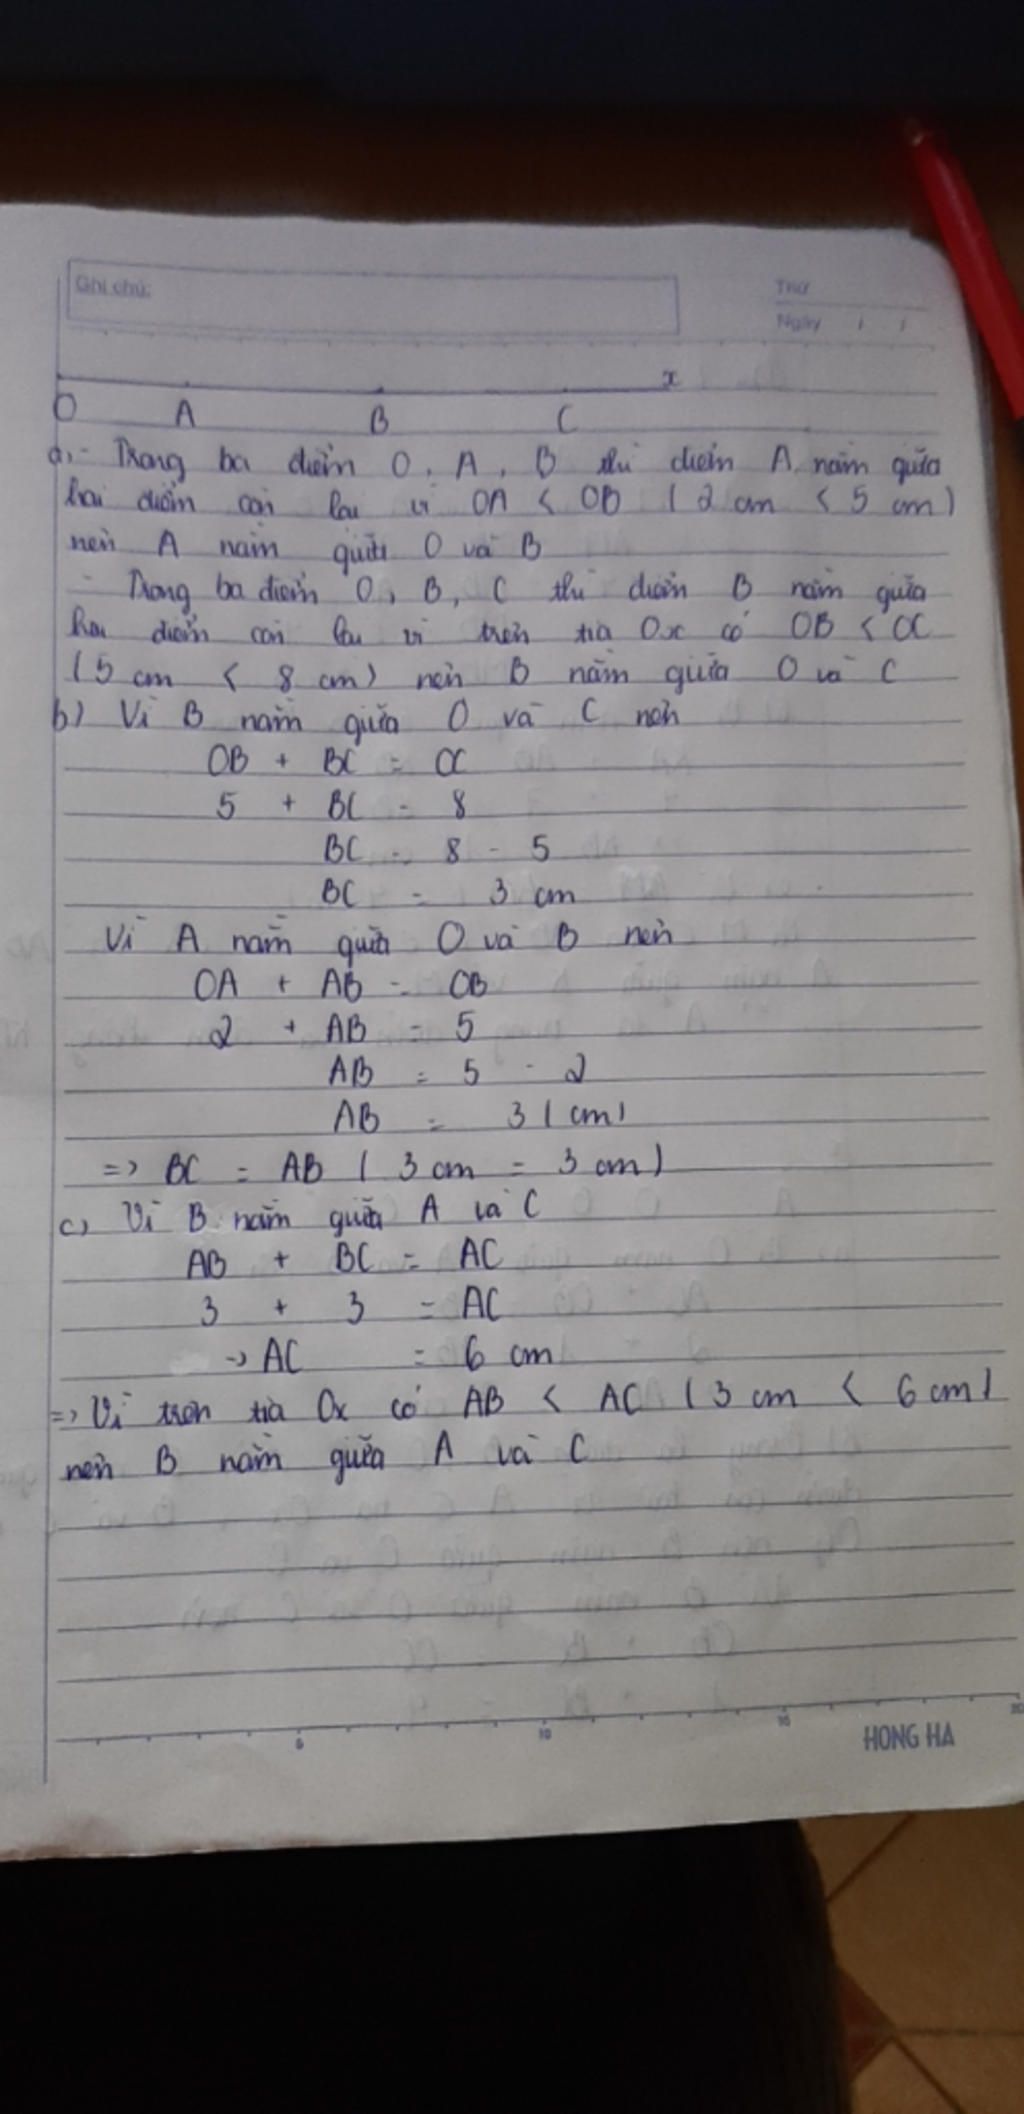 Ghi chú:
Thứ
Ngày / /
x
O A B C
a, - Trong ba điểm O, A, B thì điểm A nằm giữa
hai điểm còn lại vì OA < OB ( 2 cm < 5 cm )
nên A nằm giữa O và B
- Trong ba điểm O, B, C thì điểm B nằm giữa
hai điểm còn lại vì trên tia Ox có OB < OC
( 5 cm < 8 cm ) nên B nằm giữa O và C
b) Vì B nằm giữa O và C nên
OB + BC = OC
5 + BC = 8
BC = 8 - 5
BC = 3 cm
Vì A nằm giữa O và B nên
OA + AB = OB
2 + AB = 5
AB = 5 - 2
AB = 3 ( cm )
=> BC = AB ( 3 cm = 3 cm )
c) Vì B nằm giữa A và C
AB + BC = AC
3 + 3 = AC
-> AC = 6 cm
=> Vì trên tia Ox có AB < AC ( 3 cm < 6 cm )
nên B nằm giữa A và C
5 10 15 20
HONG HA